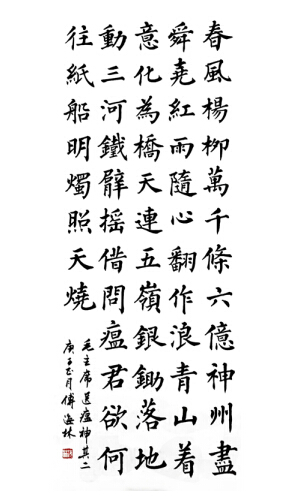 春風楊柳萬千條六億神州盡
舜堯紅雨隨心翻作浪青山着
意化為橋天連五嶺銀鋤落地
動三河鐵臂摇借問瘟君欲何
往紙船明燭照天燒
毛主席送瘟神其二
庚子月傅海林